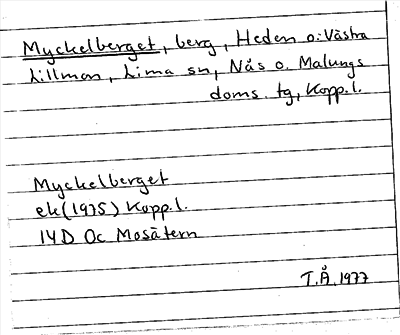 Myckelberget, berg, Heden o. Västra
Lillmon, Lima sn, Nås o. Malungs
doms. tg, Kopp.l.
Myckelberget
ek(1975) Kopp.l.
14D Oc Mosätern
T.Å.1977